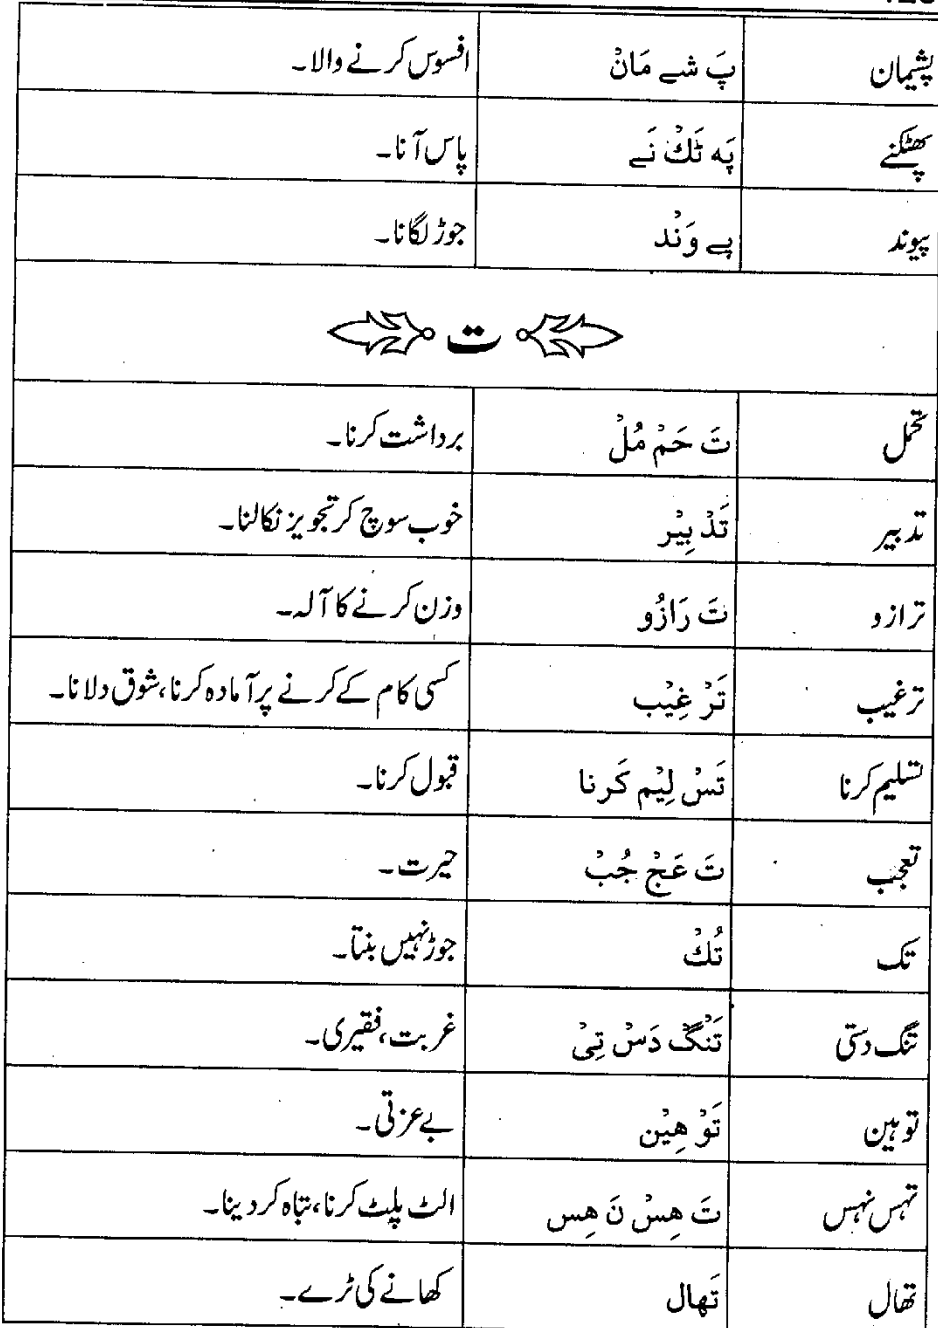 پشیمان پَ شے مَانْ افسوس کرنے والا۔
پھٹکنے پَه ٹَكْ نَے پاس آنا۔
پیوند پے وَنْد جوڑ لگانا۔
ت
تحمل تَ حَمْ مُلْ برداشت کرنا۔
تدبیر تَدْ بِيْر خوب سوچ کر تجویز نکالنا۔
ترازو تَ رَازُو وزن کرنے کا آلہ۔
ترغیب تَرْ غِيْب کسی کام کے کرنے پر آمادہ کرنا، شوق دلانا۔
تسلیم کرنا تَسْ لِيْم كَرنا قبول کرنا۔
تعجب تَ عَجْ جُبْ حیرت۔
تک تُكْ جوڑ نہیں بنتا۔
تنگ دستی تَنْگْ دَسْ تِیْ غربت، فقیری۔
توہین تَوْ هِيْن بے عزتی۔
تہس نہس تَ هِسْ نَ هِس الٹ پلٹ کرنا، تباہ کر دینا۔
تھال تَهال کھانے کی ٹرے۔